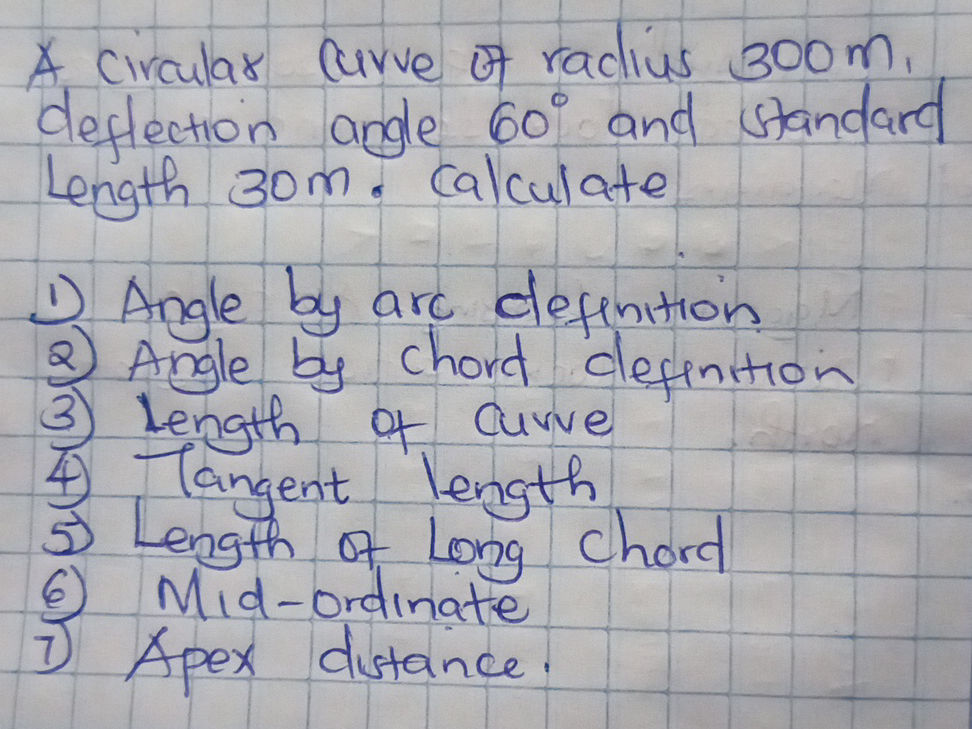 A circular curve of radius 300m,
deflection angle 60° and standard
Length 30m. Calculate
1) Angle by arc definition
2) Angle by chord definition
3) Length of curve
4) Tangent length
5) Length of Long chord
6) Mid-ordinate
7) Apex distance.